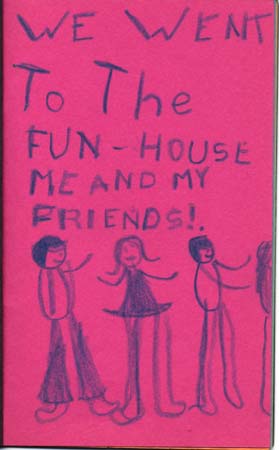 WE WENT
To The
FUN-HOUSE
ME AND MY
FRIENDS!.